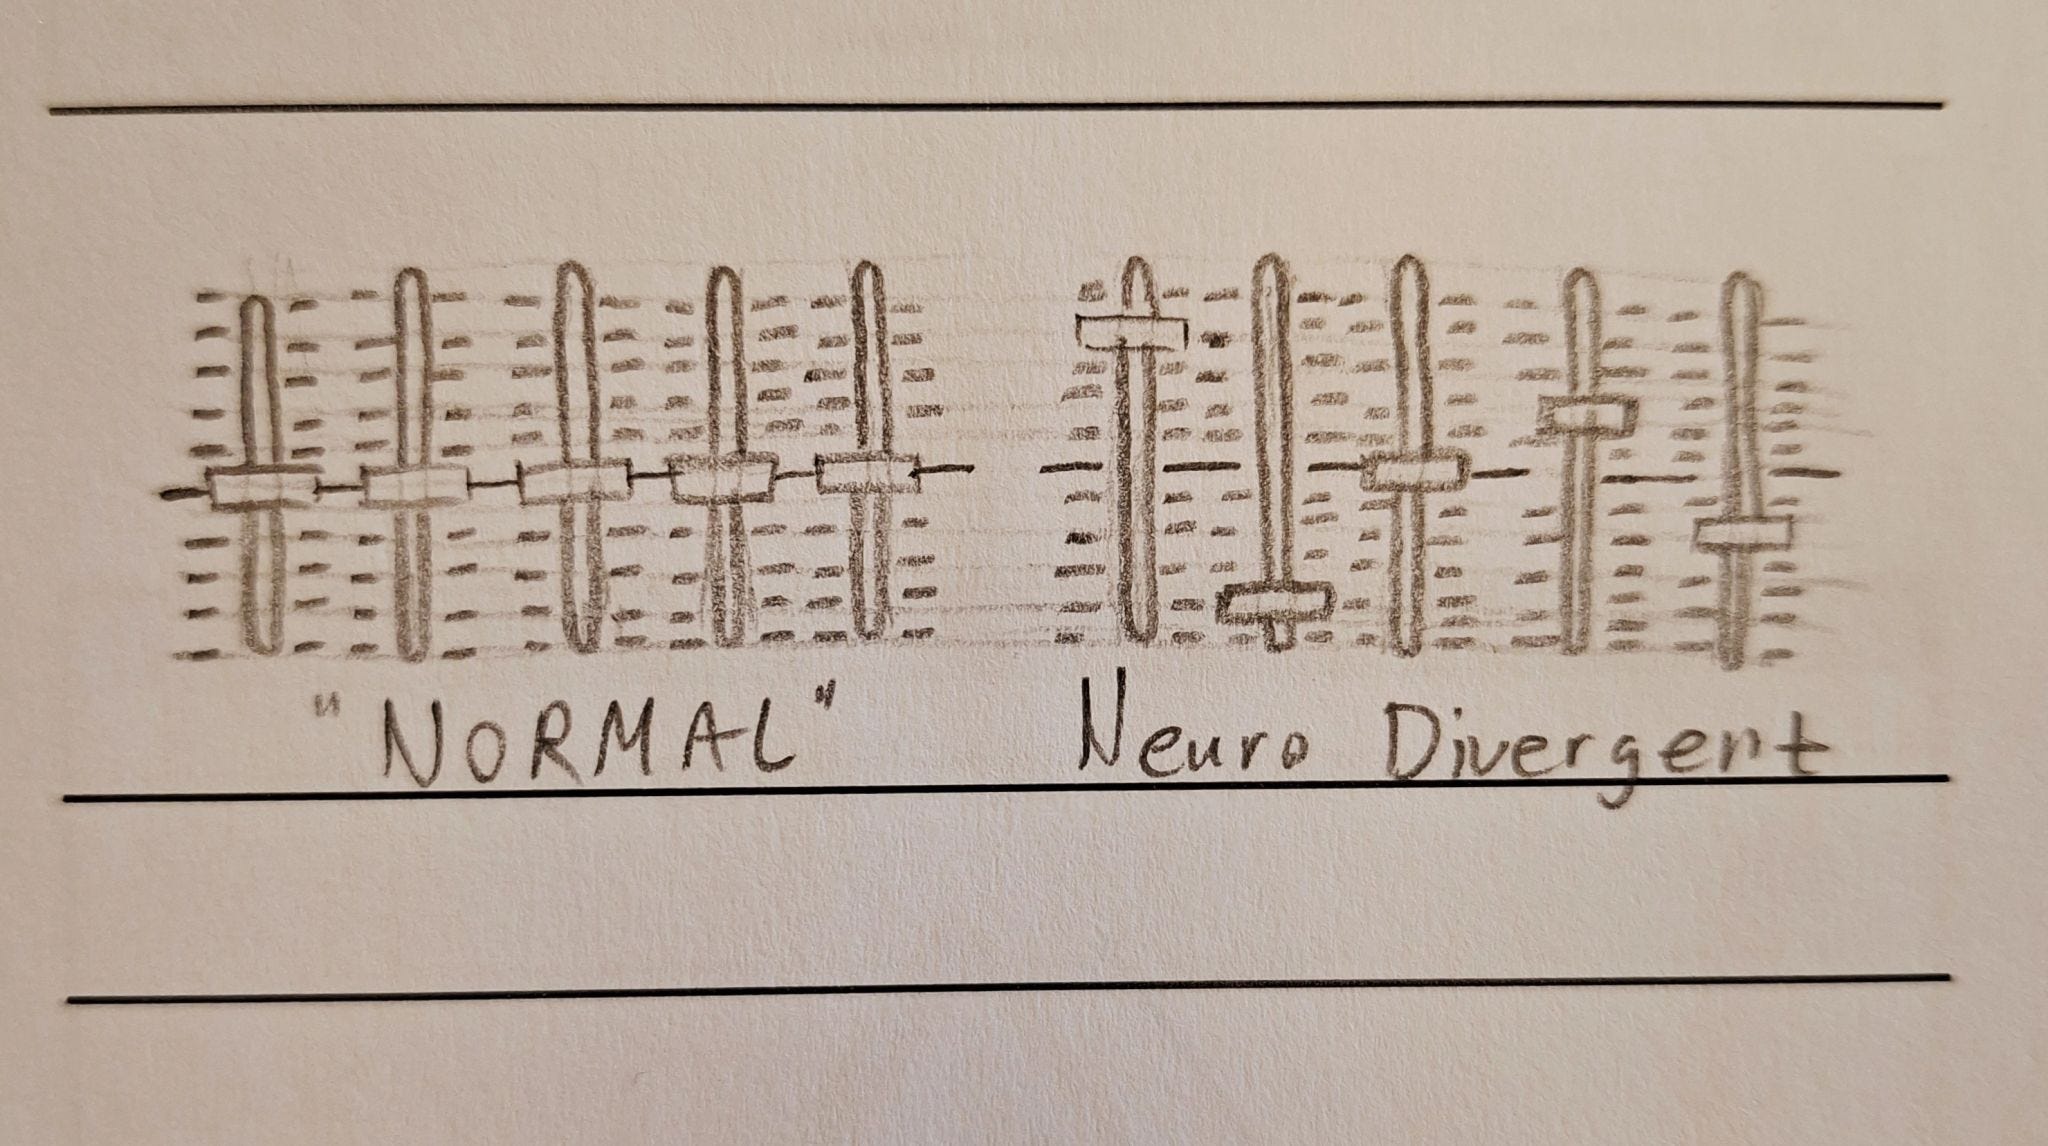 "NORMAL" Neuro Divergent